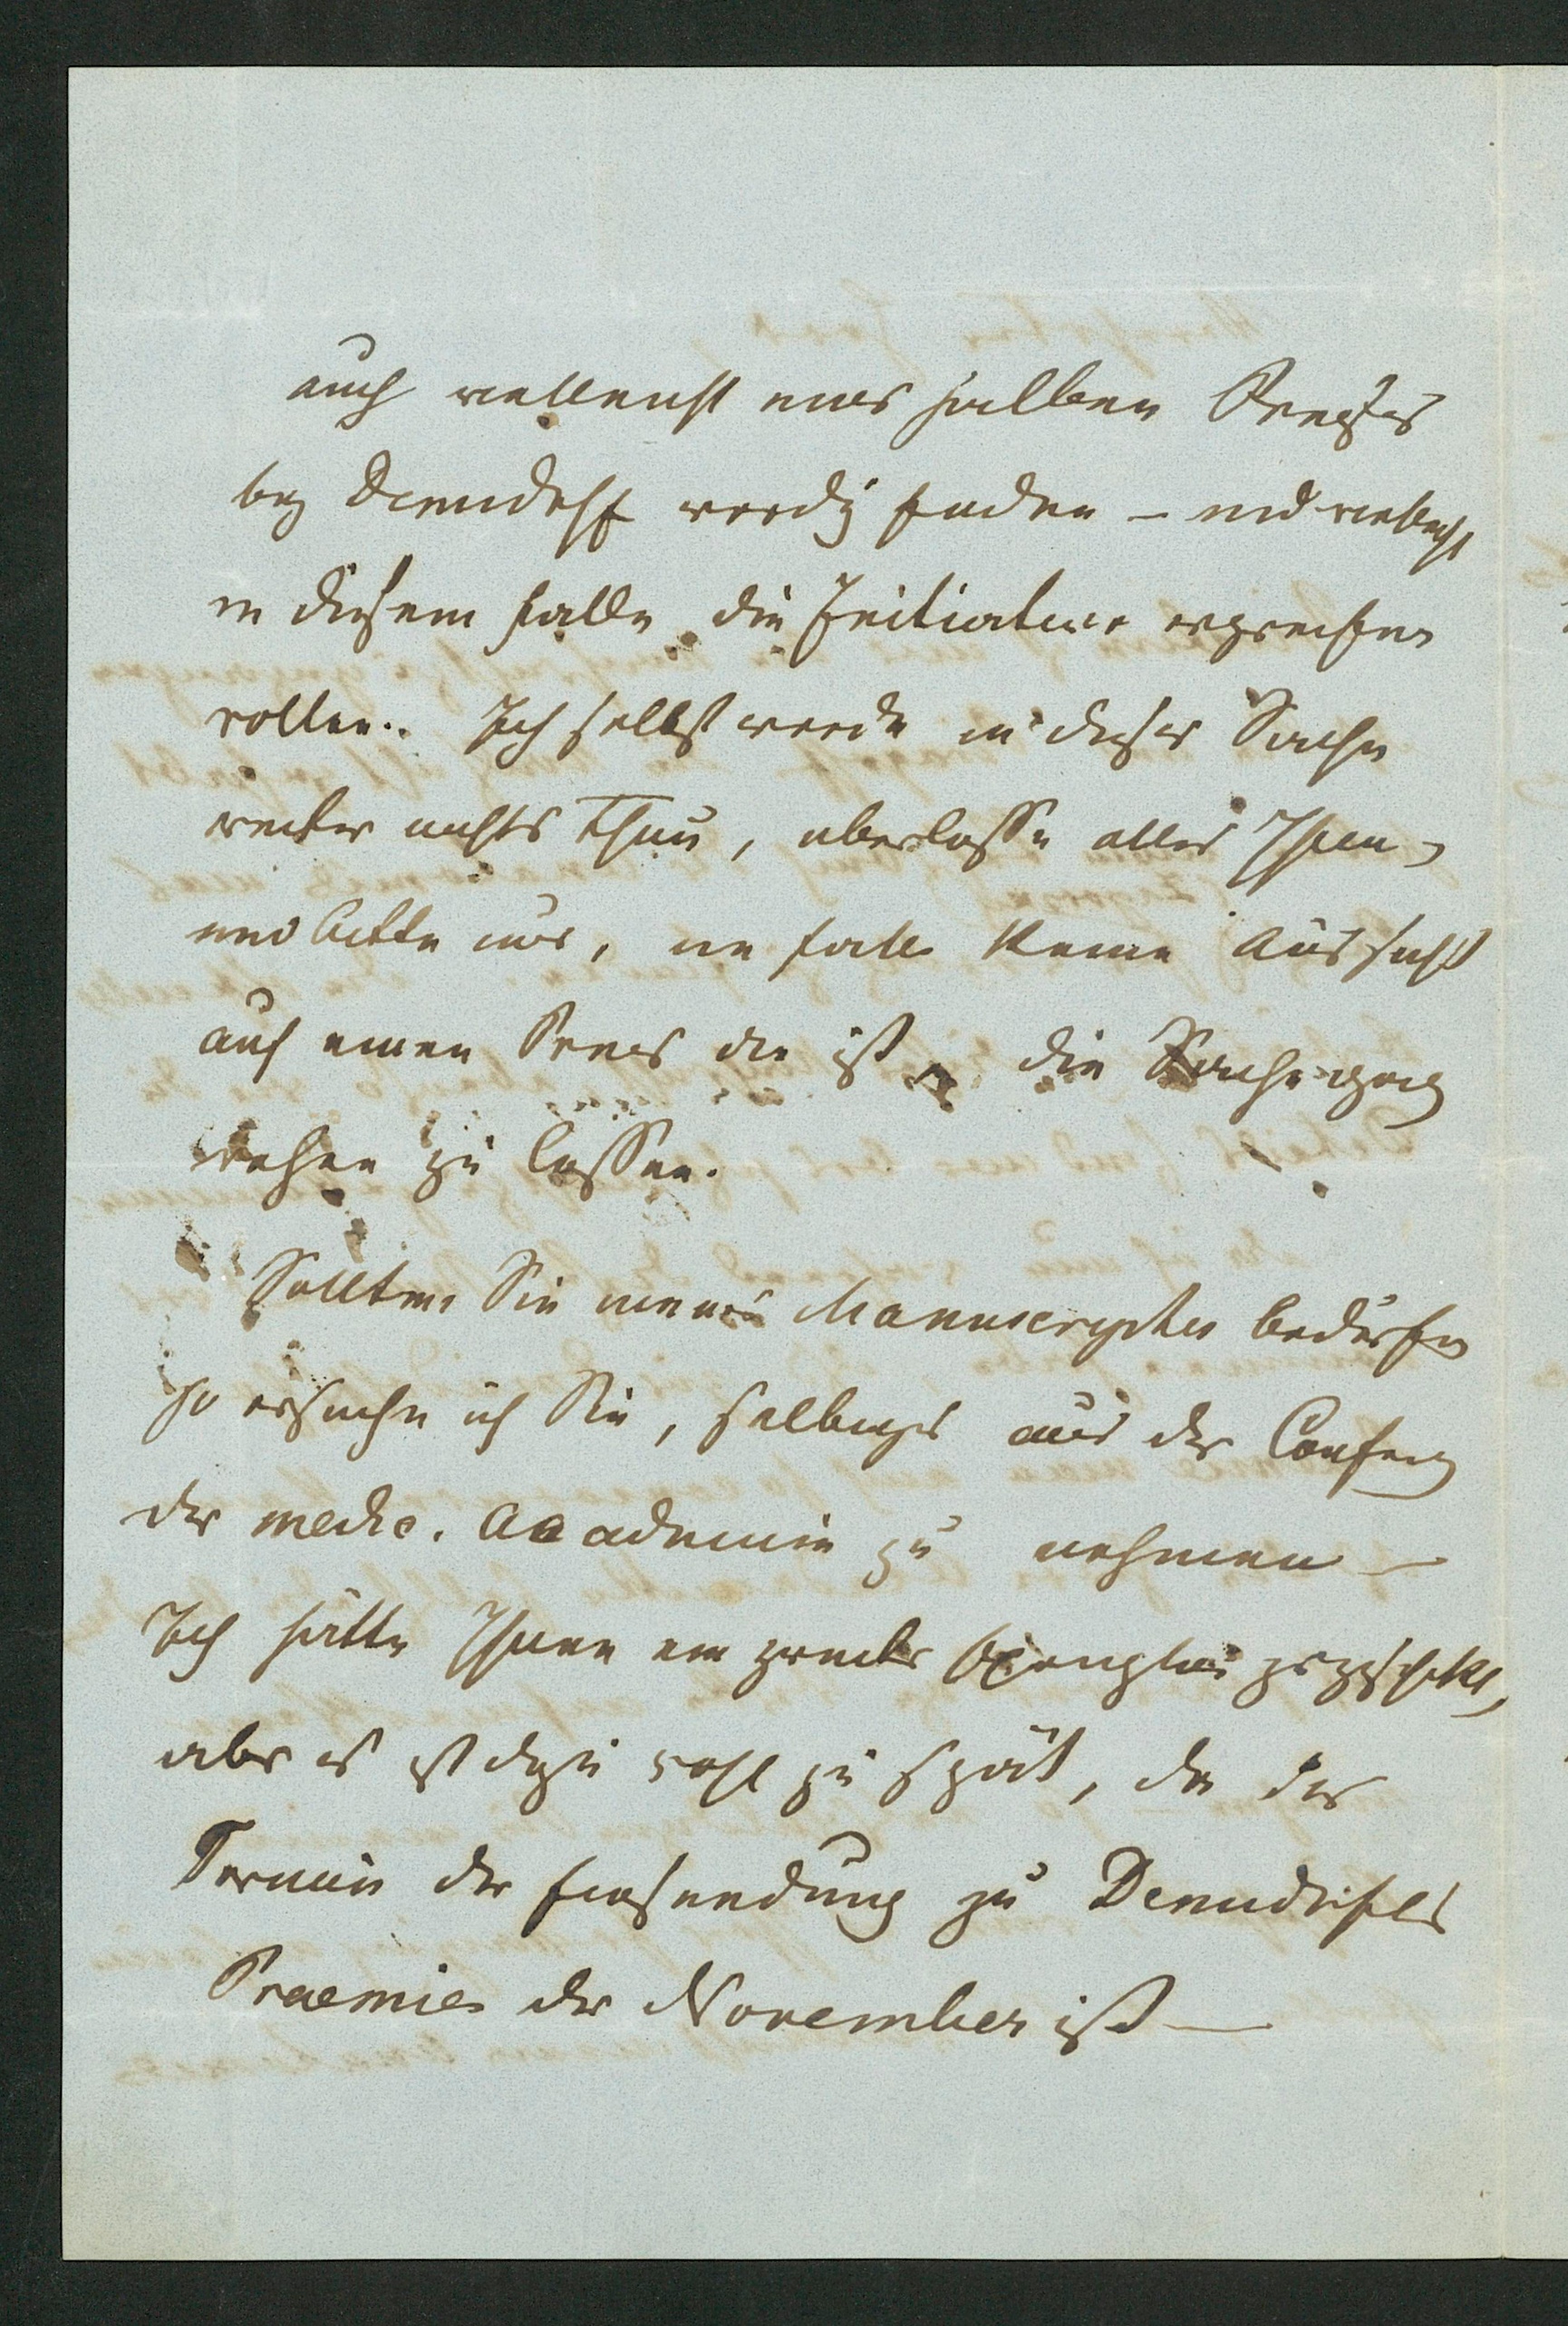 auch vielleicht eines halben Preises
bey Demidoff werdig finden – und vielleicht
in diesem Falle die Initiative ergreifen
wollen. Ich selbst werde in dieser Sache
weiter nichts thun, überlasse alles Ihnen,
und bitte nur, im Falle keine Aussicht
auf einen Preis da ist, die Sache ganz
ruhen zu lassen.
Sollten Sie meines Manuscriptes bedürfen
so ersuche ich Sie, selbiges aus der Conferenz
der medic. Academie zu nehmen –
Ich hätte Ihnen ein zweites Exemplar geschickt,
aber es ist dazu wohl zu spät, da der
Termin der Einsendung zu Demidoffs
Praemien der November ist –